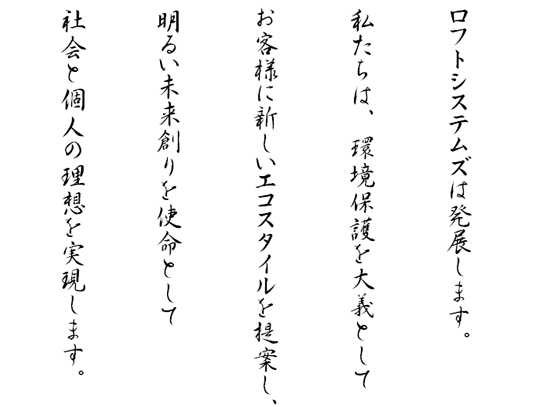 ロフトシステムズは発展します。
私たちは、環境保護を大義として
お客様に新しいエコスタイルを提案し、
明るい未来創りを使命として
社会と個人の理想を実現します。